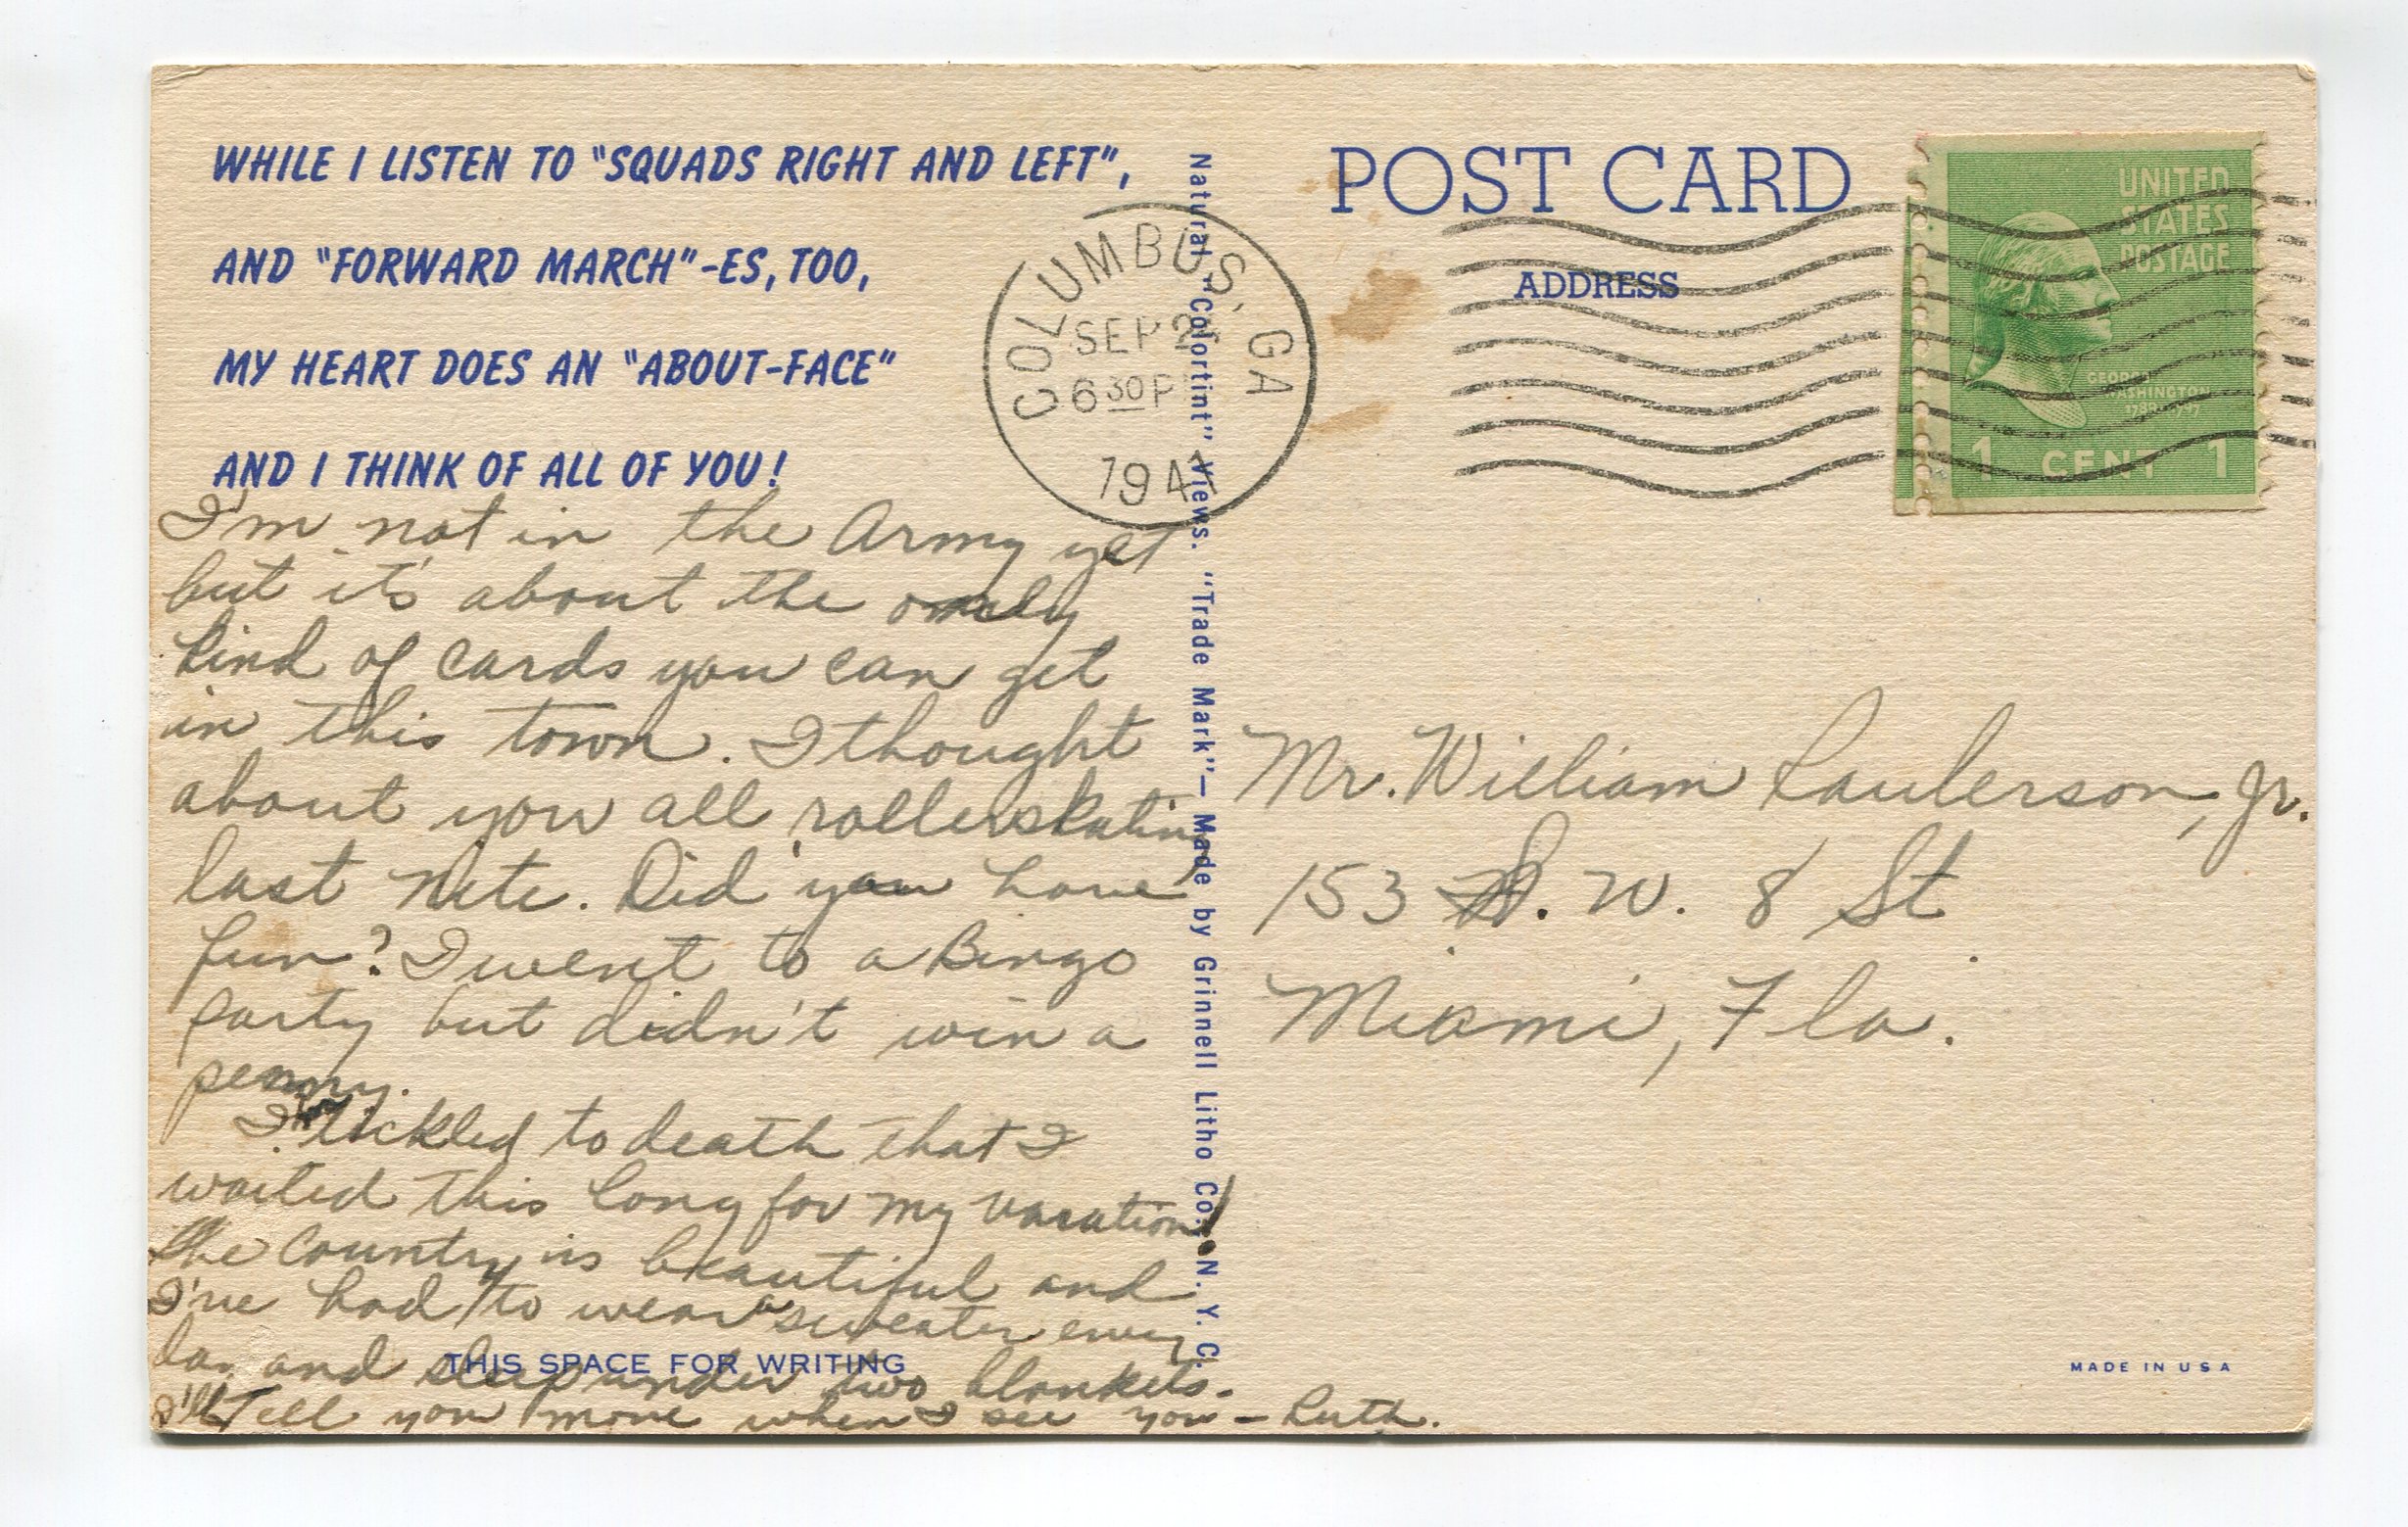 WHILE I LISTEN TO "SQUADS RIGHT AND LEFT",
AND "FORWARD MARCH"-ES, TOO,
MY HEART DOES AN "ABOUT-FACE"
AND I THINK OF ALL OF YOU!
I'm not in the Army yet
but it's about the only
kind of cards you can get
in this town. I thought
about you all rollerskating
last nite. Did you have
fun? I went to a Bingo
party but didn't win a
penny.
I'm tickled to death that I
waited this long for my vacation!
The country is beautiful and
I've had to wear a sweater every
day and sleep under two blankets.
I'll tell you more when I see you - Ruth.
THIS SPACE FOR WRITING
Natural "Colortint" Views. "Trade Mark"— Made by Grinnell Litho Co., N. Y. C.
COLUMBUS, GA
SEP
6 30 P
194
POST CARD
ADDRESS
UNITED
STATES
POSTAGE
GEORGE
WASHINGTON
1 CENT 1
Mr. William Raulerson, Jr.
153 S. W. 8 St.
Miami, Fla.
MADE IN USA